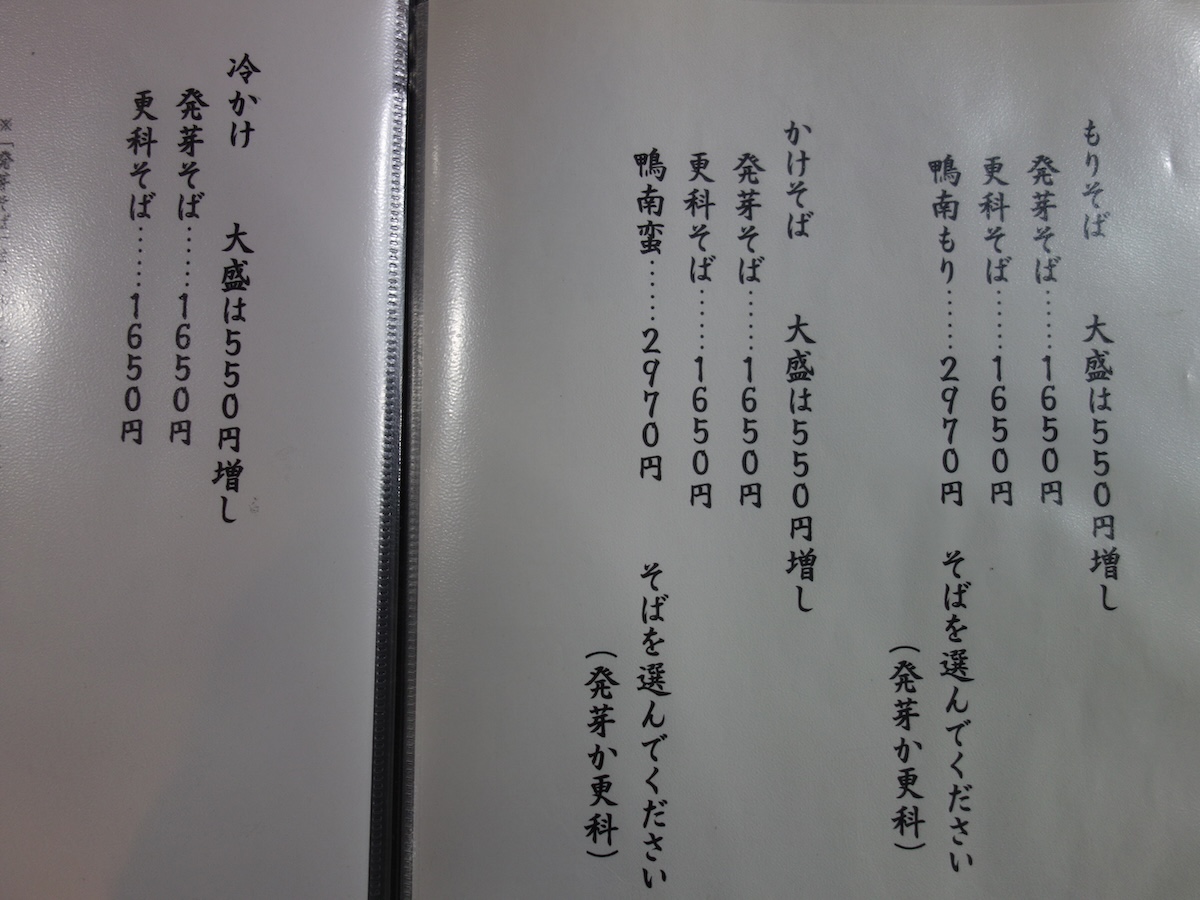 もりそば　大盛は550円増し
発芽そば………1650円
更科そば………1650円
鴨南もり………2970円　そばを選んでください
（発芽か更科）
かけそば　大盛は550円増し
発芽そば………1650円
更科そば………1650円
鴨南蛮………2970円　そばを選んでください
（発芽か更科）
冷かけ　大盛は550円増し
発芽そば………1650円
更科そば………1650円
※「発芽そば